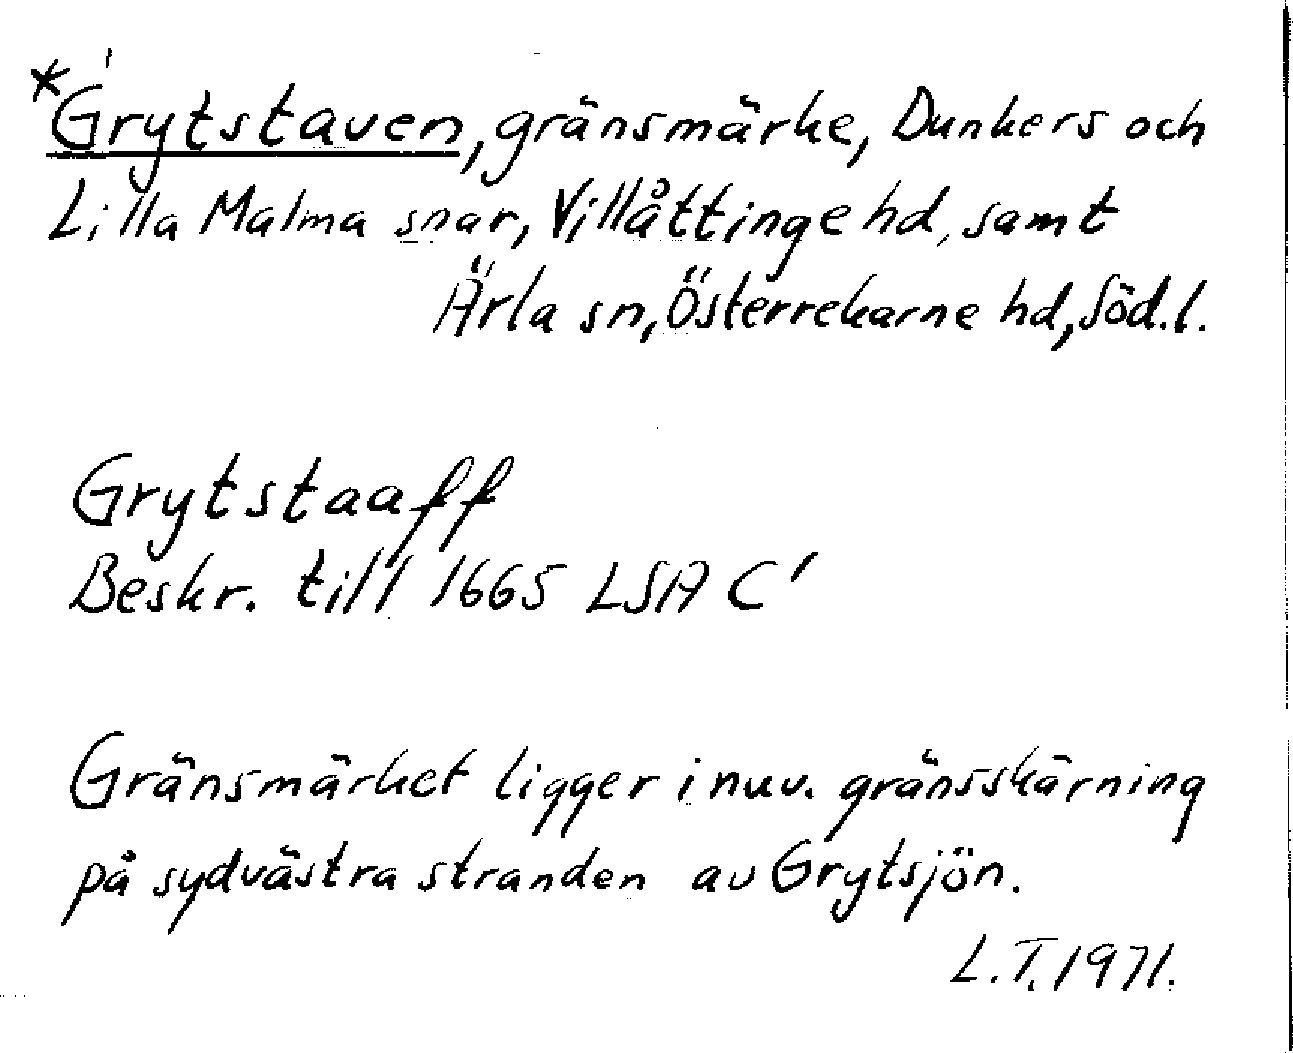 *Grytstaven, gränsmärke, Dunkers och
Lilla Malma snar, Villåttinge hd, samt
Ärla sn, Österrekarne hd, Söd.l.
Grytstaaff
Beskr. till 1665 LSA C'
Gränsmärket ligger i nuv. gränsskärning
på sydvästra stranden av Grytsjön.
L.T. 1971.